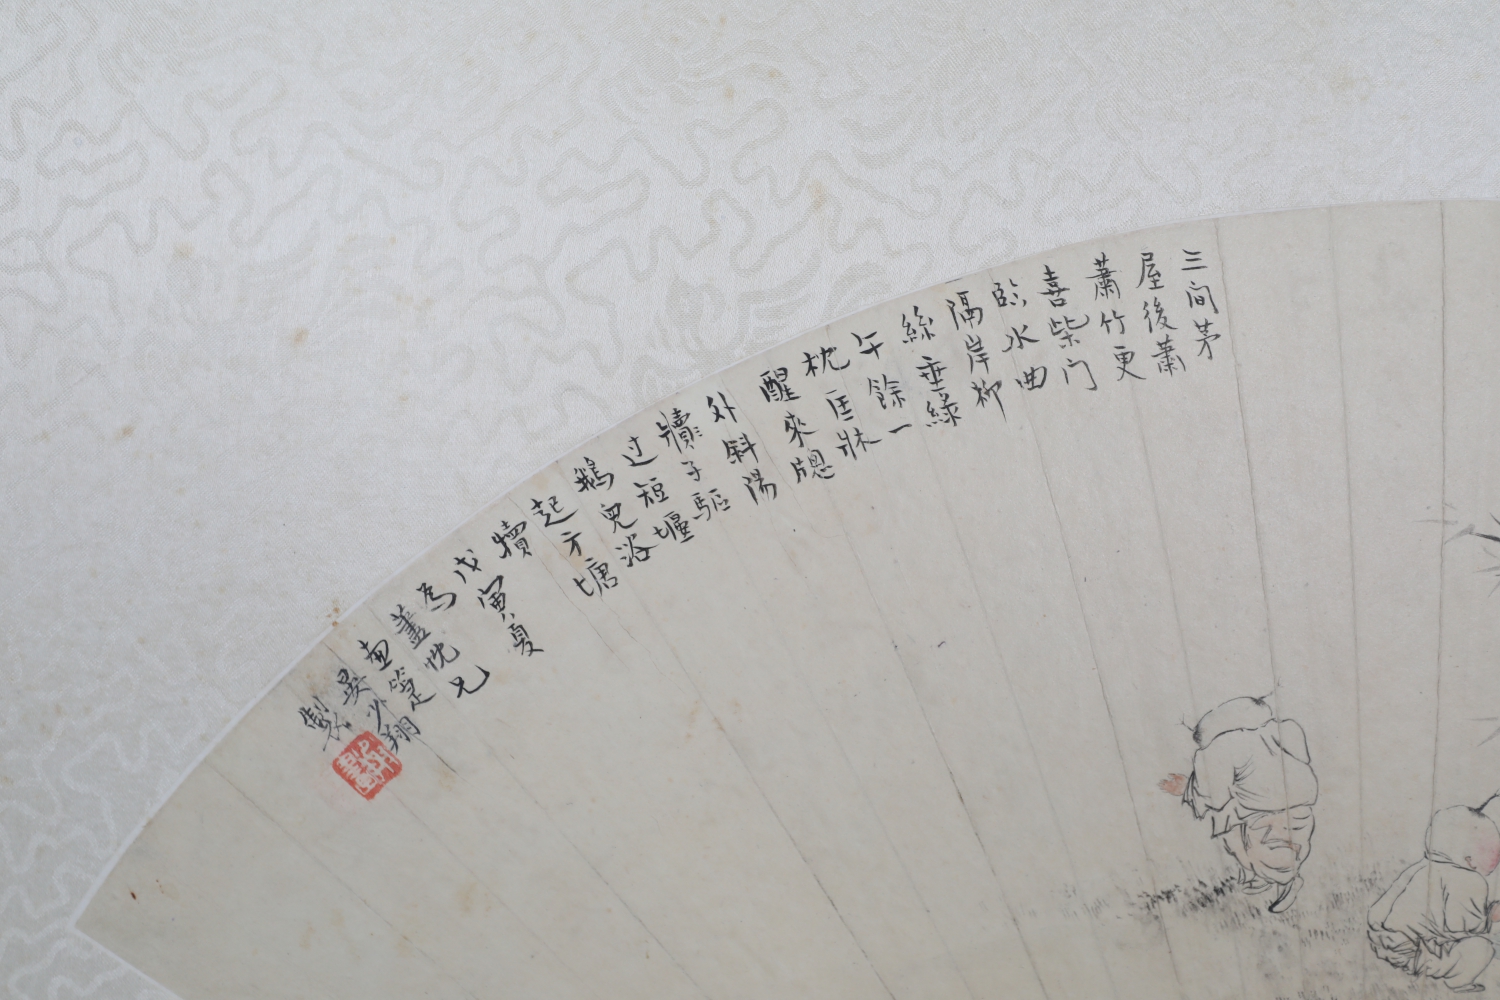 三间茅
屋後蕭
蕭竹更
喜柴门
臨水曲
隔岸柳
絲垂綠
午餘一
枕匡牀
醒來牕
外斜陽
犢子驅
过短堰
鵝兒浴
起方塘
犢
戊寅夏
為 忱兄
畫箑
吳少翔
製